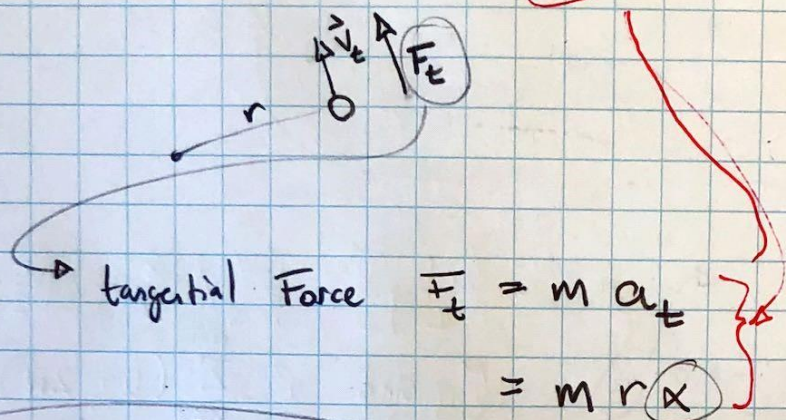 v⃗t Ft
r
tangential Force Ft = m at
= m r α